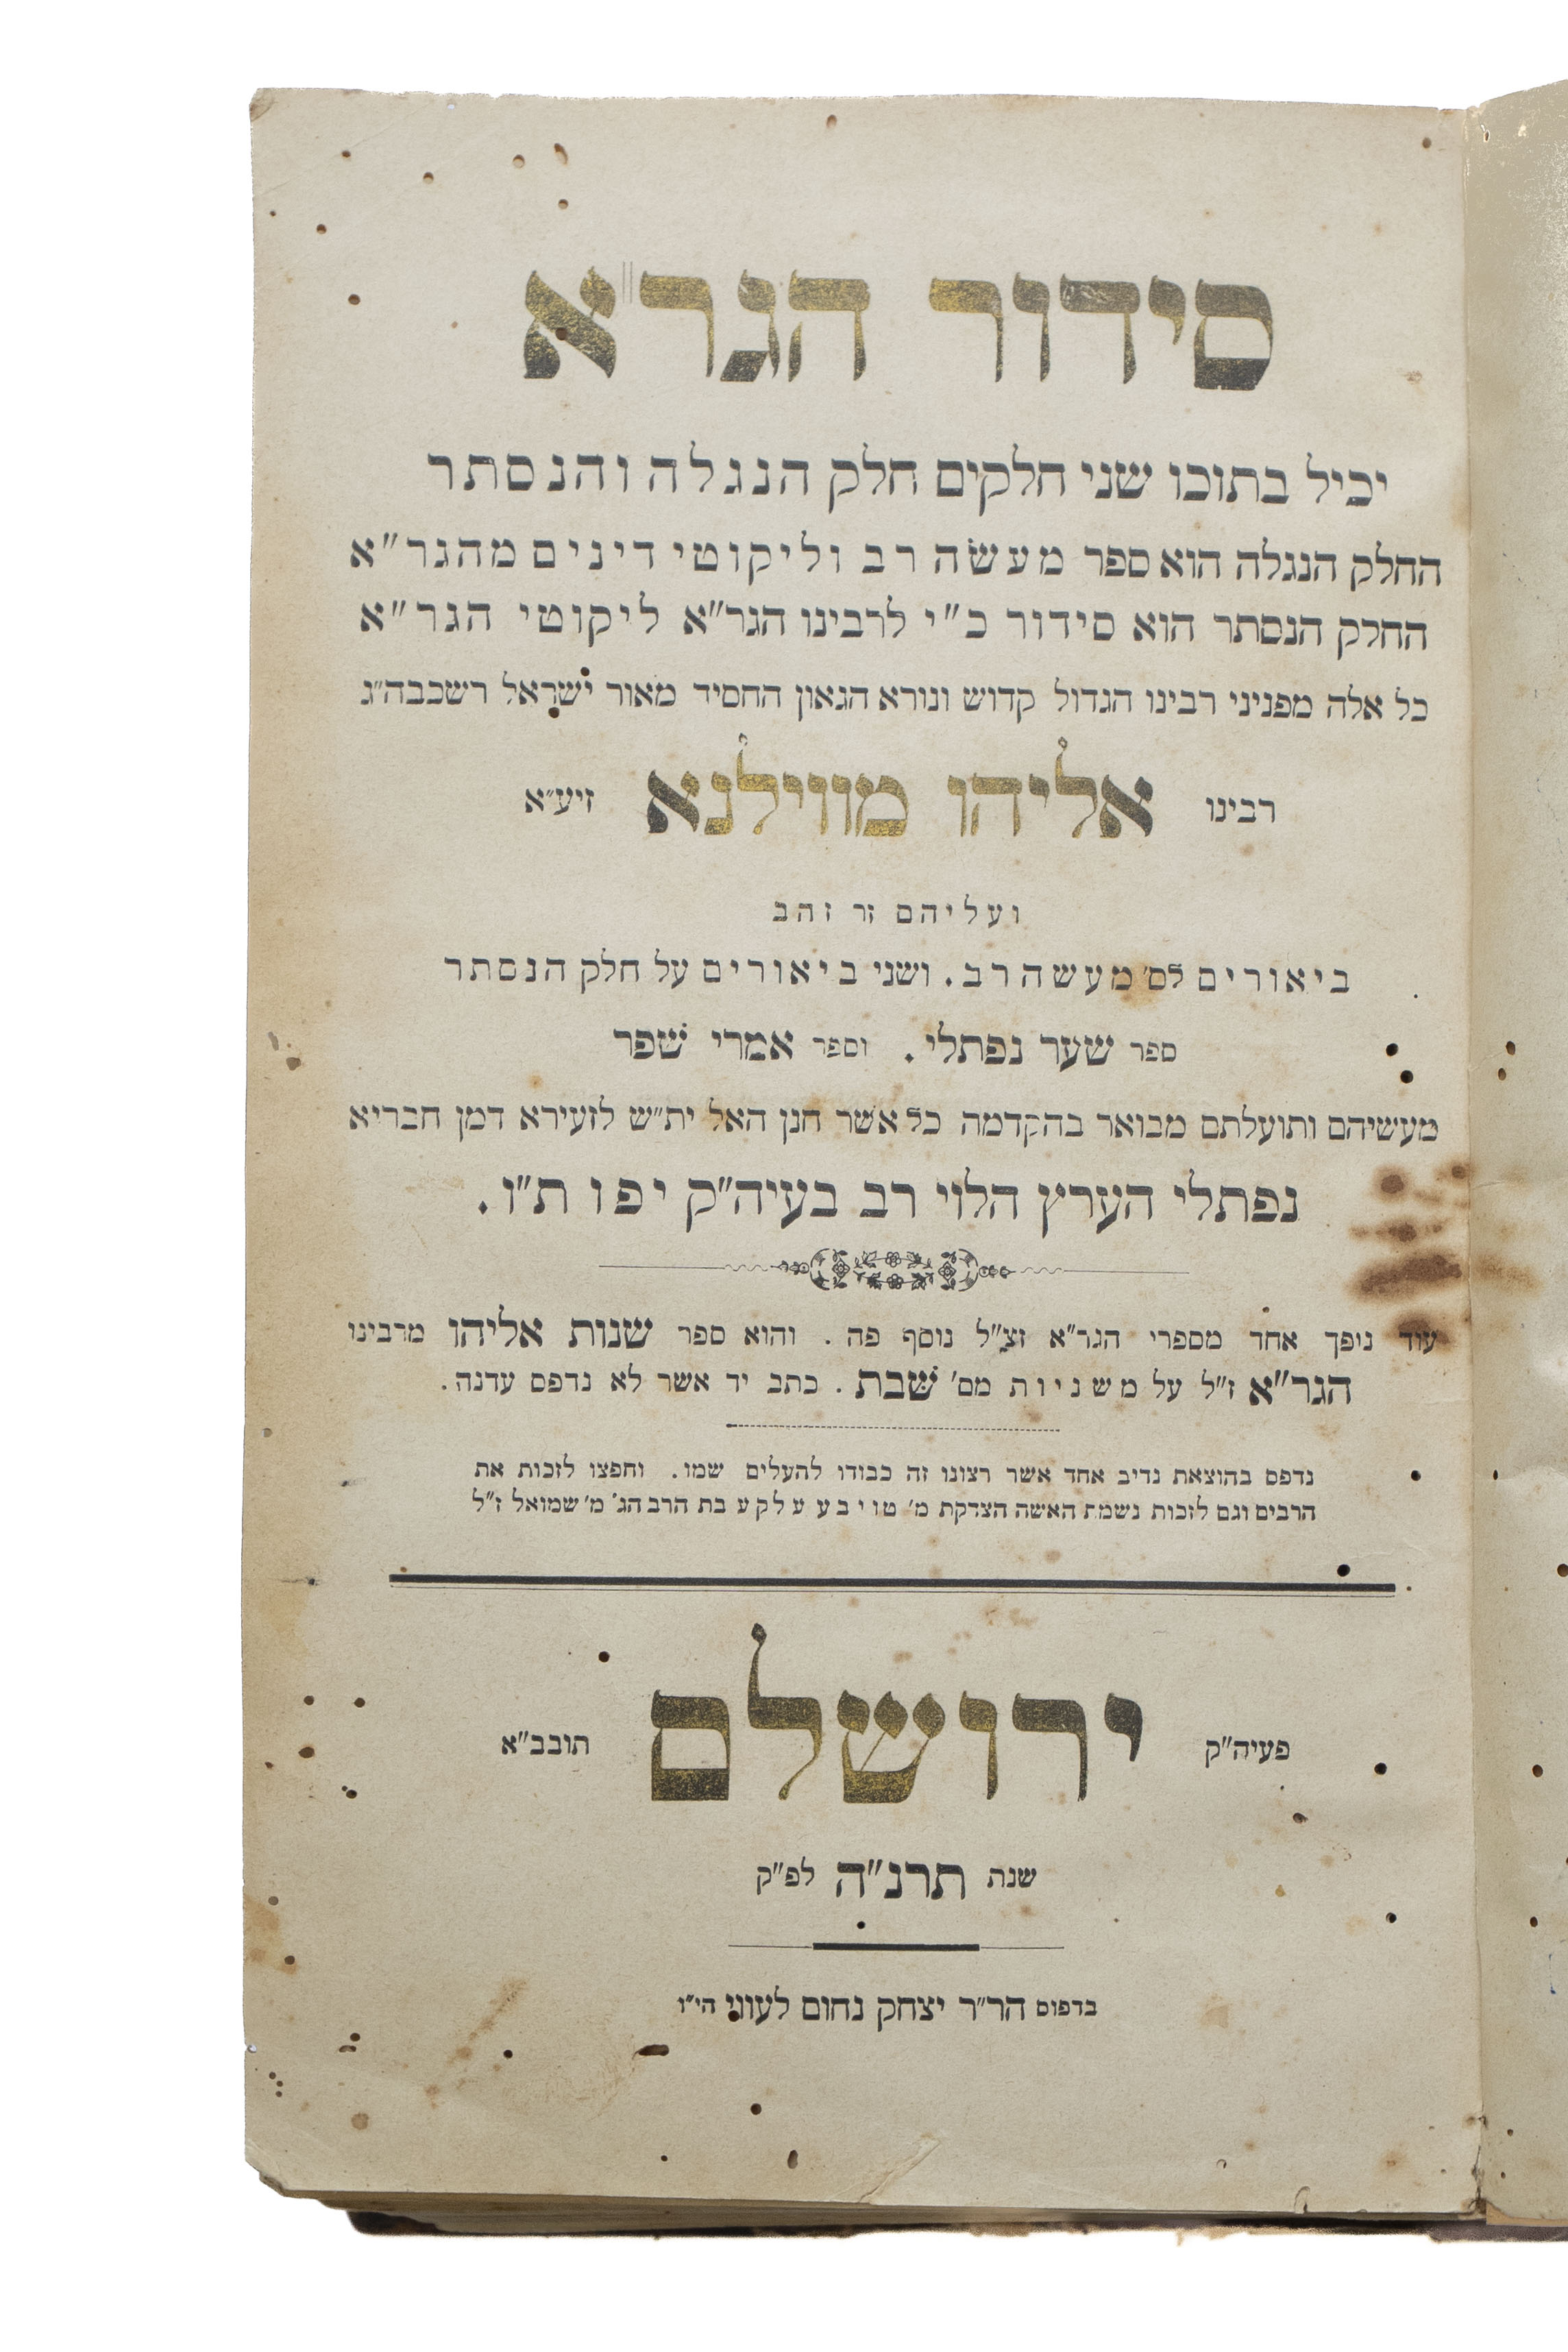 סידור הגר"א
יכיל בתוכו שני חלקים חלק הנגלה והנסתר
החלק הנגלה הוא ספר מעשה רב וליקוטי דינים מהגר"א
החלק הנסתר הוא סידור כ"י לרבינו הגר"א ליקוטי הגר"א
כל אלה מפניני רבינו הגדול קדוש ונורא הגאון החסיד מאור ישראל רשכבה"ג
רבינו אליהו מווילנא זיע"א
ועליהם זר זהב
ביאורים לס' מעשה רב. ושני ביאורים על חלק הנסתר
ספר שער נפתלי. וספר אמרי שפר
מעשיהם ותועלתם מבואר בהקדמה כל אשר חנן האל ית"ש לזעירא דמן חבריא
נפתלי הערץ הלוי רב בעיה"ק יפו ת"ו.
עוד ניפך אחד מספרי הגר"א זצ"ל נוסף פה. והוא ספר שנות אליהו מרבינו
הגר"א ז"ל על משניות מס' שבת. כתב יד אשר לא נדפס עדנה.
נדפס בהוצאת נדיב אחד אשר רצונו זה כבודו להעלים שמו. וחפצו לזכות את
הרבים וגם לזכות נשמת האשה הצדקת מ' טויבע עלקע בת הרב הג' מ' שמואל ז"ל
פעיה"ק ירושלם תובב"א
שנת תרנ"ה לפ"ק
בדפוס הר"ר יצחק נחום לעווי הי"ו